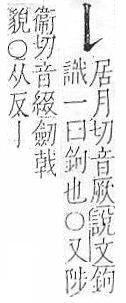 𠄌
居月切音厥說文鉤
識一曰鉤也○又陟
衞切音綴劒戟
貌○从反亅